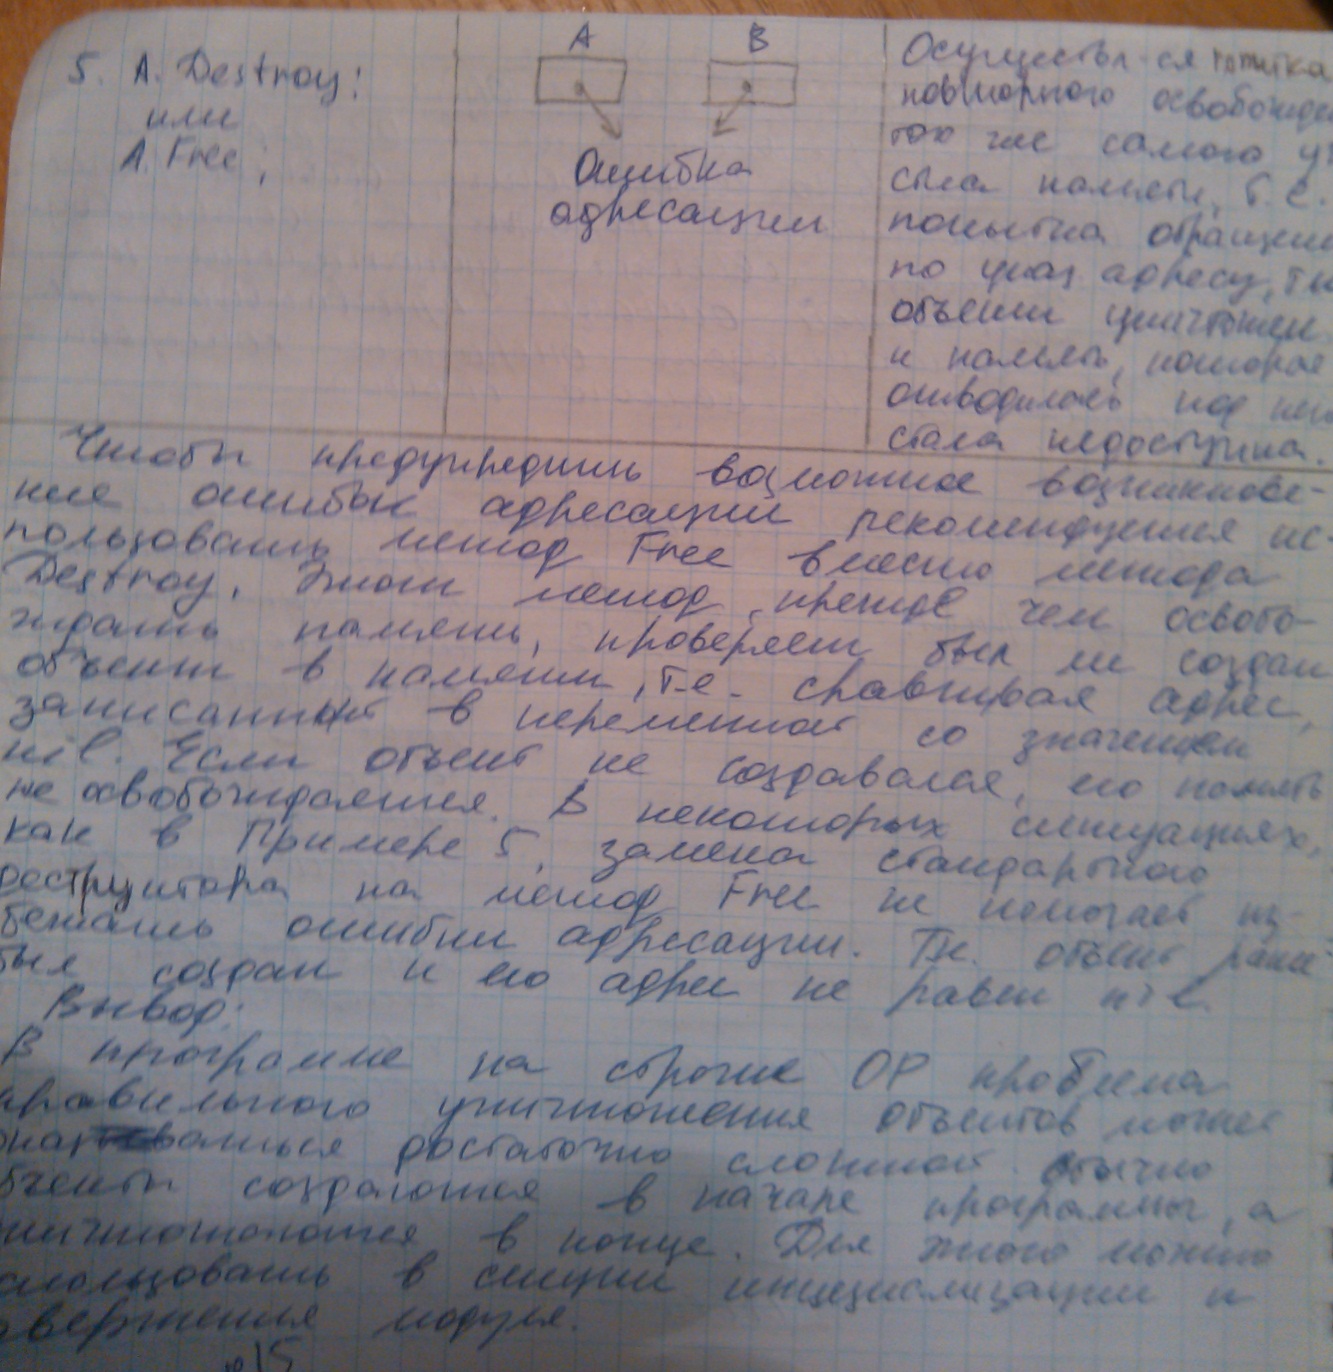 5. A. Destroy;
или
A. Free;
A B
Ошибка
адресации
Осуществл-ся попытка
повторного освобожде
того же самого уч
стка памяти, т.е.
попытка обращени
по указ адресу, т.к
объект уничтожен
и память, которая
отводилась под него
стала недоступна.
Чтобы предупредить возможное возникнове-
ние ошибок адресации рекомендуется ис-
пользовать метод Free вместо метода
Destroy. Этот метод, прежде чем освобо-
ждать память, проверяет был ли создан
объект в памяти, т.е. сравнивая адрес,
записанный в переменной со значением
nil. Если объект не создавался, его память
не освобождается. В некоторых ситуациях,
как в Примере 5, замена стандартного
деструктора на метод Free не помогает из-
бежать ошибки адресации. Т.к. объект ранее
был создан и его адрес не равен nil.
Вывод:
В программе на строгие ОР проблема
правильного уничтожения объектов может
оказываться достаточно сложной. Обычно
объекты создаются в начале программы, а
уничтожаются в конце. Для этого можно
использовать в секции инициализации и
завершения модуля.
15